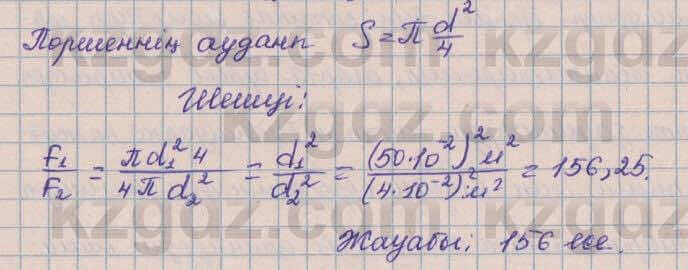 Поршеннің ауданы S = π d²/4
Шешуі:
F₁/F₂ = πd₁² 4 / 4π d₂² = d₁²/d₂² = (50·10⁻²)² м² / (4·10⁻²)² м² = 156,25.
Жауабы: 156 есе.